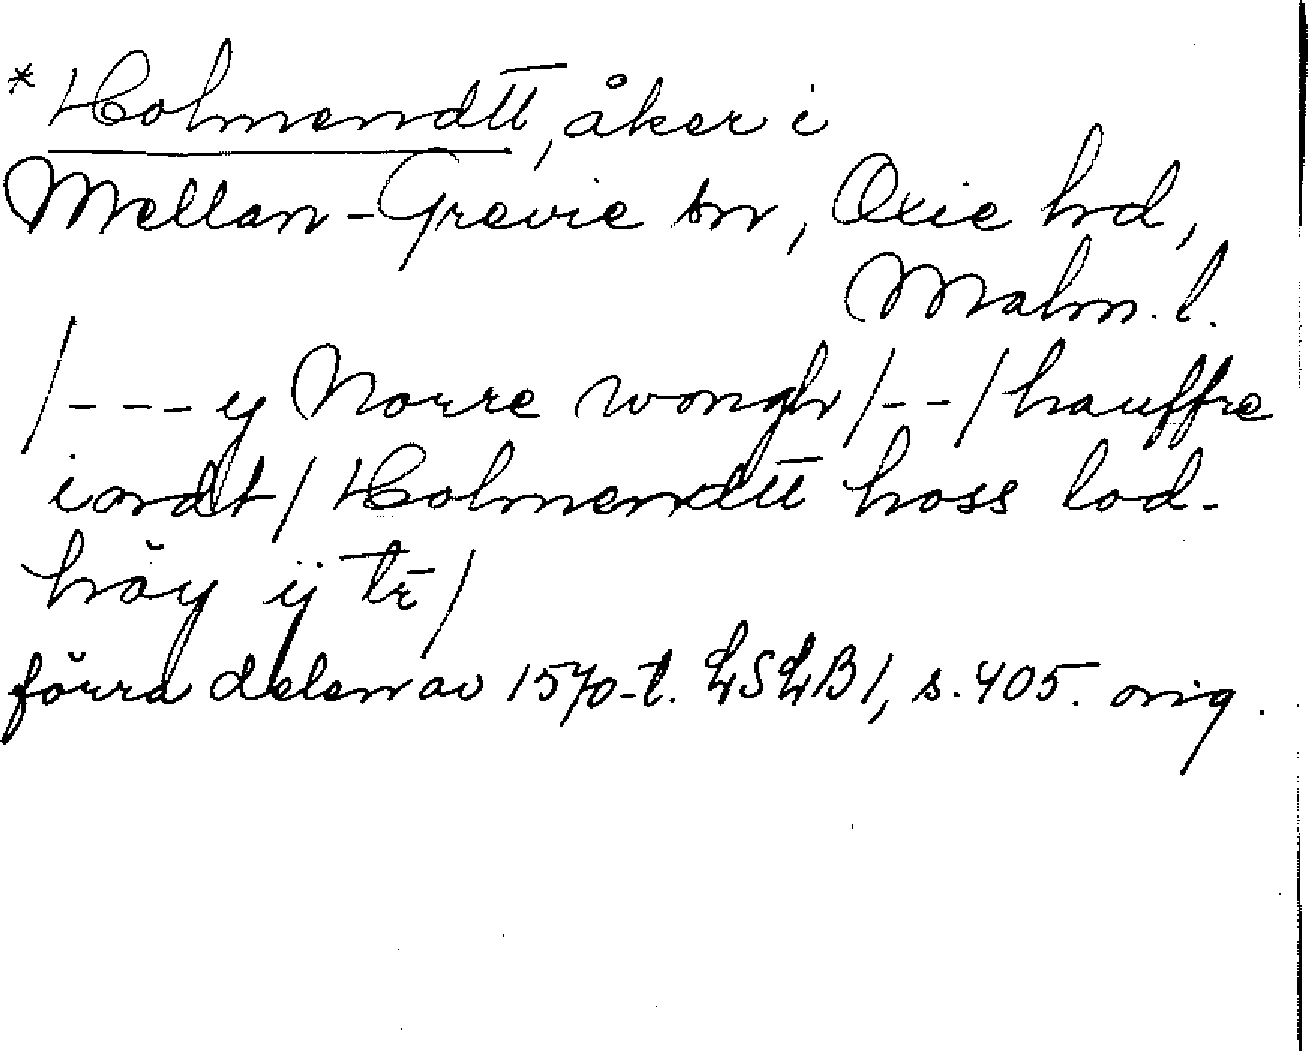 *Holmendtt, åker i
Mellan-Grevie sn, Oxie hd,
Malm. l.
/---y Norre wongh/--/hauffre
iordt/Holmendtt hoss lod-
höy ij tr/
förra delen av 1570-t. LSLB1, s. 405. orig.